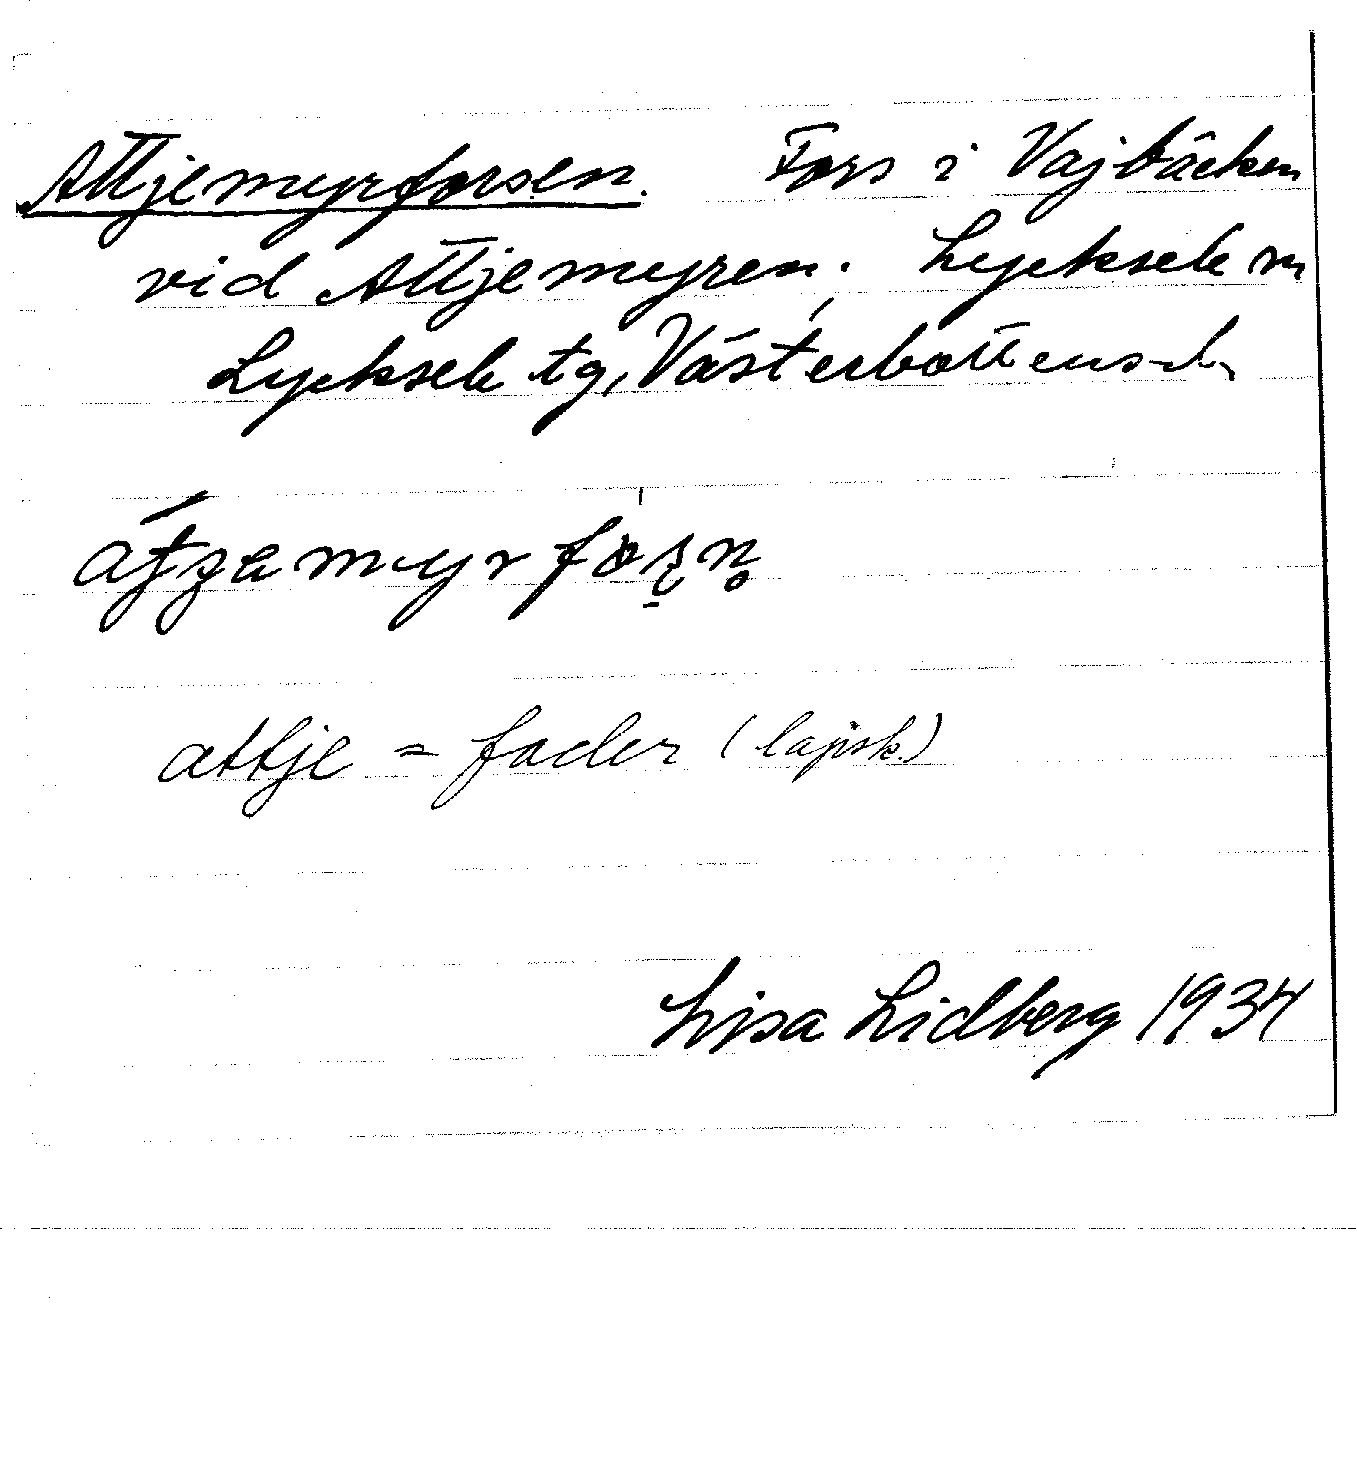 Attjemyrforsen. Fors i Vajbäcken
vid Attjemyren. Lycksele
Lycksele tg, Västerbottens l.
attje = fader (lapsk.)
Lisa Lidberg 1934